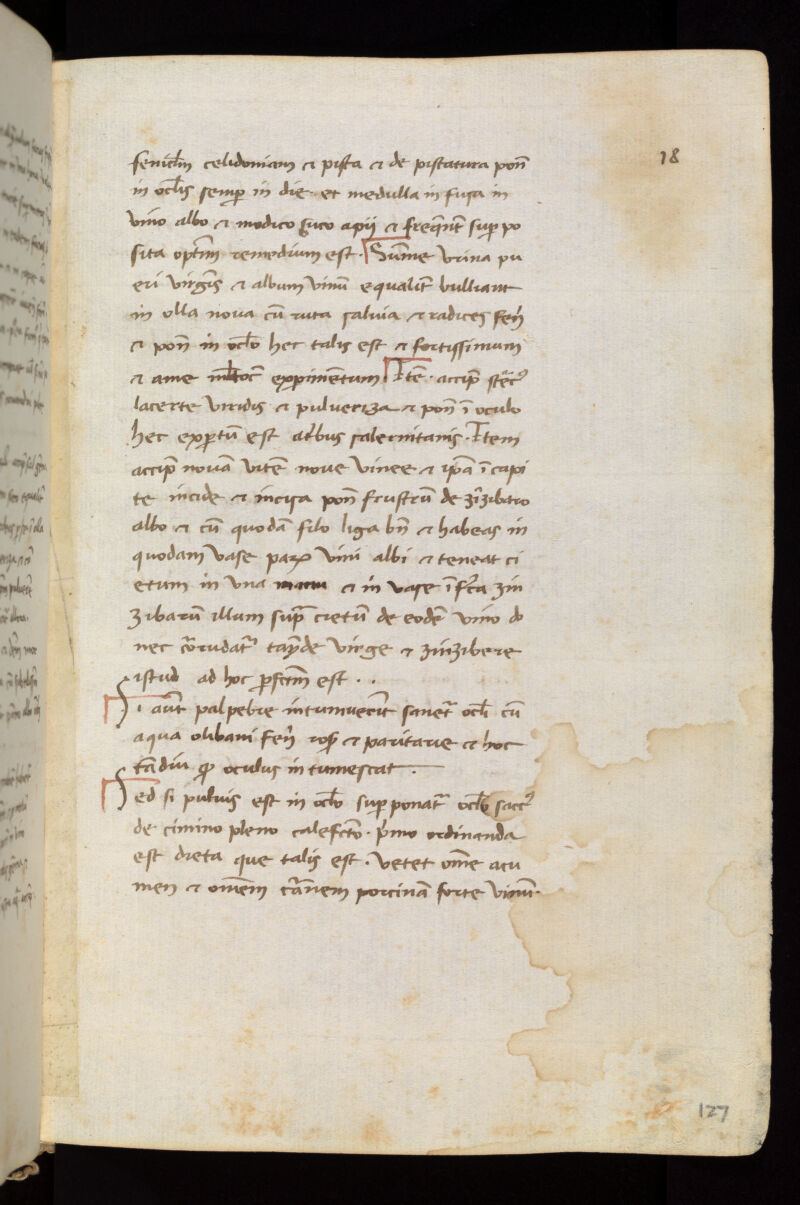 18
fenicłm celidoniam ⁊ pista ⁊ de pistatura pon̄
in ocłis semp̄ in die et medulla infusa in
vino albo ⁊ modico suco apij ⁊ freq̄nt̄ sup po
sita optīm remedium est. Sum̄e vrina pu
eri virgīs ⁊ album vinū equalit̄ bulliant
in olla nova cū ruta salvia ⁊ radices fen̄
⁊ pon̄ in ocło hec talis est ⁊ fortissimum
⁊ a me expimentum Itē. accip̄
lacerte viridis ⁊ pulveriza ⁊ pon̄ ī oculo
hec exp̄tū est salernitanis. Item
accip̄ novā vitē nove vinee ⁊ ip̄a ī capi
te incide ⁊ incisa pon̄ frustrū de zīzibaro
albo ⁊ cū quodā filo liga bn̄ ⁊ habeas in
quodam vase vini albi ⁊ teneat ci
etum in vna manu ⁊ in vase zin
zibarū illum sup̄ cietū de eodē vino do
nec virge ⁊ zinzibere
istud ad hoc pfc̄m est . .
Si aūt palpebre intumuerīt sanet̄ ocłi cū
aqua olibani fen̄ ros̄ ⁊ paritarie ⁊ hoc
tādiu oculus intumescat .
Sed si pulvis est in ocło supponat̄ ocło
de cimino pleno calefcto. p̄mo ordinanda
est dieta que talis est. vetet om̄e acu
men ⁊ om̄em carnem porcinā forte vinū.
127